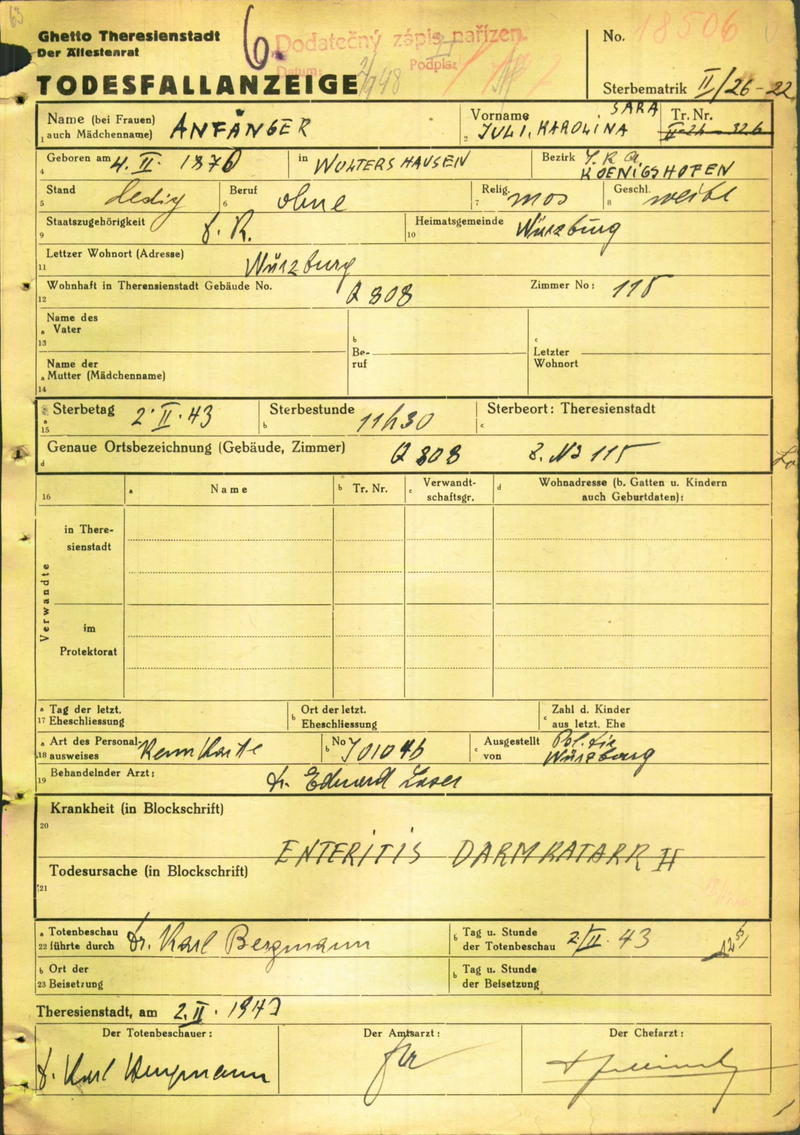 63
Ghetto Theresienstadt
Der Ältestenrat
6.
Dodatečný zápis nařízen.
Datum:
Podpis:
No. 18506
TODESFALLANZEIGE
Sterbematrik II/26-22
Name (bei Frauen)
1 auch Mädchenname) ANFÄNGER
Vorname SARA
2 JULI, KAROLINA
Tr. Nr.
4 Geboren am 4. II. 1876 in WULTERSHAUSEN Bezirk
KOENIGSHOFEN
5 Stand ledig 6 Beruf ohne 7 Relig. mos 8 Geschl. weibl
9 Staatszugehörigkeit D. R. 10 Heimatsgemeinde Würzburg
11 Lettzer Wohnort (Adresse) Würzburg
12 Wohnhaft in Theresienstadt Gebäude No. Q 808 Zimmer No: 115
Name des
a Vater
13
b Be-
ruf
c Letzter
Wohnort
Name der
a Mutter (Mädchenname)
14
a 15 Sterbetag 2. II. 43 b Sterbestunde 11h30 c Sterbeort: Theresienstadt
d Genaue Ortsbezeichnung (Gebäude, Zimmer) Q 808 Z. No 115
16 a Name b Tr. Nr. c Verwandt-
schaftsgr. d Wohnadresse (b. Gatten u. Kindern
auch Geburtdaten):
Verwandte
in There-
sienstadt
im
Protektorat
a Tag der letzt.
17 Eheschliessung
b Ort der letzt.
Eheschliessung
c Zahl d. Kinder
aus letzt. Ehe
a Art des Personal-
18 ausweises Kennkarte
b No J01046
c Ausgestellt
von Pol. Dir.
Würzburg
19 Behandelnder Arzt: Dr. Eduard Laser
20 Krankheit (in Blockschrift)
ENTERITIS DARMKATARR II
21 Todesursache (in Blockschrift)
a Totenbeschau
22 führte durch Dr. Karl Bergmann
b Tag u. Stunde
der Totenbeschau 2/II. 43
b Ort der
23 Beisetzung
b Tag u. Stunde
der Beisetzung
Theresienstadt, am 2. II. 1943
Der Totenbeschauer: Der Amtsarzt: Der Chefarzt:
D. Karl Bergmann